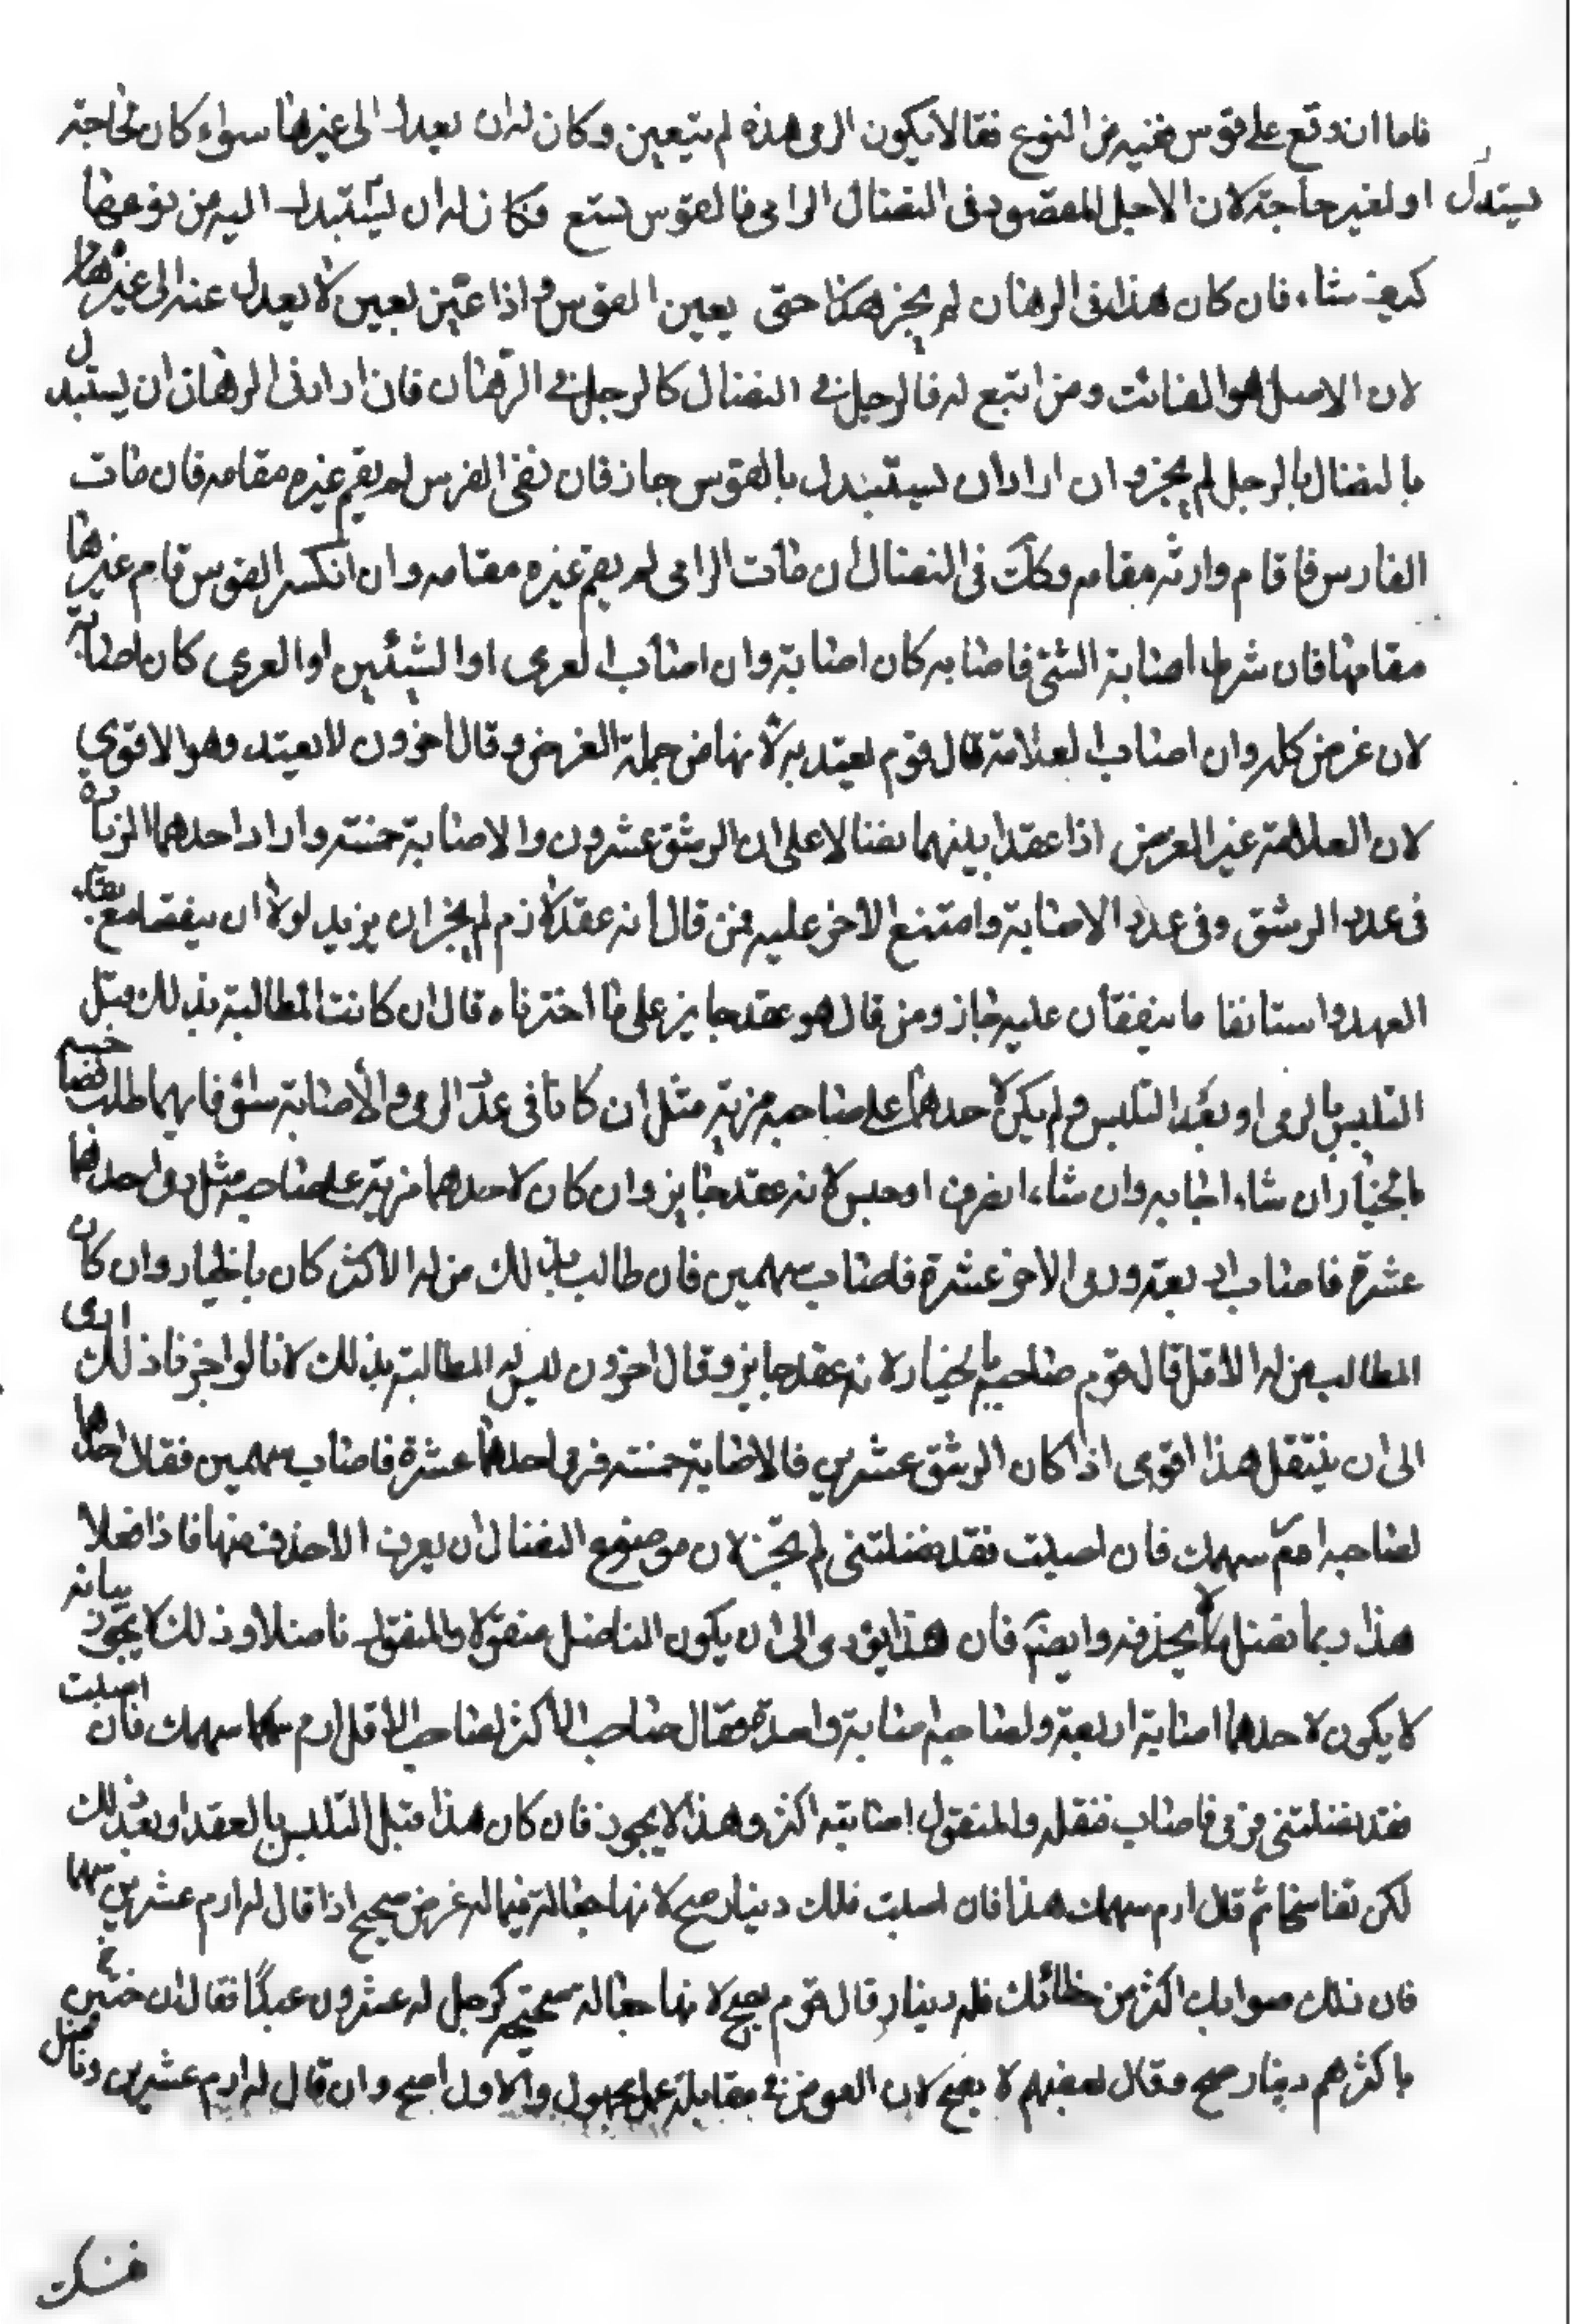 فاما ان وقع على قوس بعينه من النوع فقالا يكون الرمى بهذه لم يتعين وكان له ان يعدل الى غيرها سواء كان لحاجة
يستبدل
او لغير حاجة لان الاصل المقصود فى النضال الرامى فالقوس تبتع فكان له ان يستبدل اليه من نوعها
كيف شاء فان كان هذا فى الرهان لم يجز هكذا حتى يعين الفرس واذا عين تعين لا يعدل عنه الى غيرها
لان الاصل هو الفائت ومن اتبع له فالرجل فى النضال كالرجل فى الرهان فان اراد فى الرهان ان يستبدل
بالنضال بالرجل لم يجز وان اراد ان يستبدل بالقوس جاز فان نفق الفرس لم يقم غيره مقامه فان مات
الفارس فاقام وارثه مقامه وكك فى النضال ان مات الرامى لم يقم غيره مقامه وان انكسر القوس قام غيرها
مقامها فان شرط اصابة الشئ فاصابه كان اصابة وان اصاب العرى او الشيئين او العرى كان اصابة
لان غرض كله وان اصاب العلامة قال قوم يعتد به لانها من جملة الغرض وقال اخرون لا يعتد وهو الاقوى
لان العلامة غير الغرض اذا عقدا بينهما نضالا على ان الرشق عشرون والاصابة خمسة واراد احدهما الزيادة
فى عدد الرشق وفى عدد الاصابة وامتنع الاخر عليه فمن قال انه عقد لازم لم يجز ان يزيد لولا ان يفسخا مع بقاء
العهد واستانفا ما يتفقان عليه جاز ومن قال هو عقد جايز على ما اخترناه قال ان كانت المطالبة بذلك قبل
التلبس بالرمى او بعد التلبس ولم يكن لاحدهما على صاحبه مزية مثل ان كانا فى عدد الرمى والاصابة سواء فايهما طلب
بالخيار ان شاء اجابه وان شاء انصرف او جلس لانه عقد جايز وان كان لاحدهما مزية على صاحبه مثل رمى احدهما
عشرة فاصاب اربعة ورمى الاخر عشرة فاصاب سهمين فان طالب بذلك من له الاكثر كان بالخيار وان كان
المطالب من له الاقل قال قوم صاحبه بالخيار لانه عقد جايز وقال اخرون ليس له المطالبة بذلك لانا لو اجزنا ذلك ادى
الى ان ينتقل هذا اقوى اذا كان الرشق عشرين فالاصابة خمسة فرمى احدهما عشرة فاصاب سهمين فقال احدهما
لصاحبه ارم سهمك فان اصبت فقد نضلتنى لم يجز لان موضوع النضال ان يعرف الاحذف منهما فاذا فعلا
هذا ربما نضل لا بحذفه وايضم فان هذا يؤدى الى ان يكون الناضل منضولا والمنضول ناضلا وذلك لا يجوز بيانه
لا يكون لاحدهما اصابة اربعة ولصاحبه اصابة واحدة فقال صاحب الاكثر لصاحب الاقل ارم سهمك فان اصبت
فقد نضلتنى فرمى فاصاب فنضله والمنضول اصابته اكثر وهذا لا يجوز فان كان هذا قبل التلبس بالعقد او بعد ذلك
لكن تفاسخا ثم قال ارم سهمك هذا فان اصبت فلك دينار صح لانها جعالة فيما له غرض صحيح اذا قال له ارم عشرين سهما
فان نلت صوابك اكثر من خطائك فله دينار قال قوم يصح لانها جعالة صحيحة كرجل له عشرون عبدا فقال ان جئتنى
باكثرهم دينار صح وقال بعضهم لا يصح لان العوض فى مقابلة عمل مجهول والاول اصح وان قال له ارم عشرين وناضل